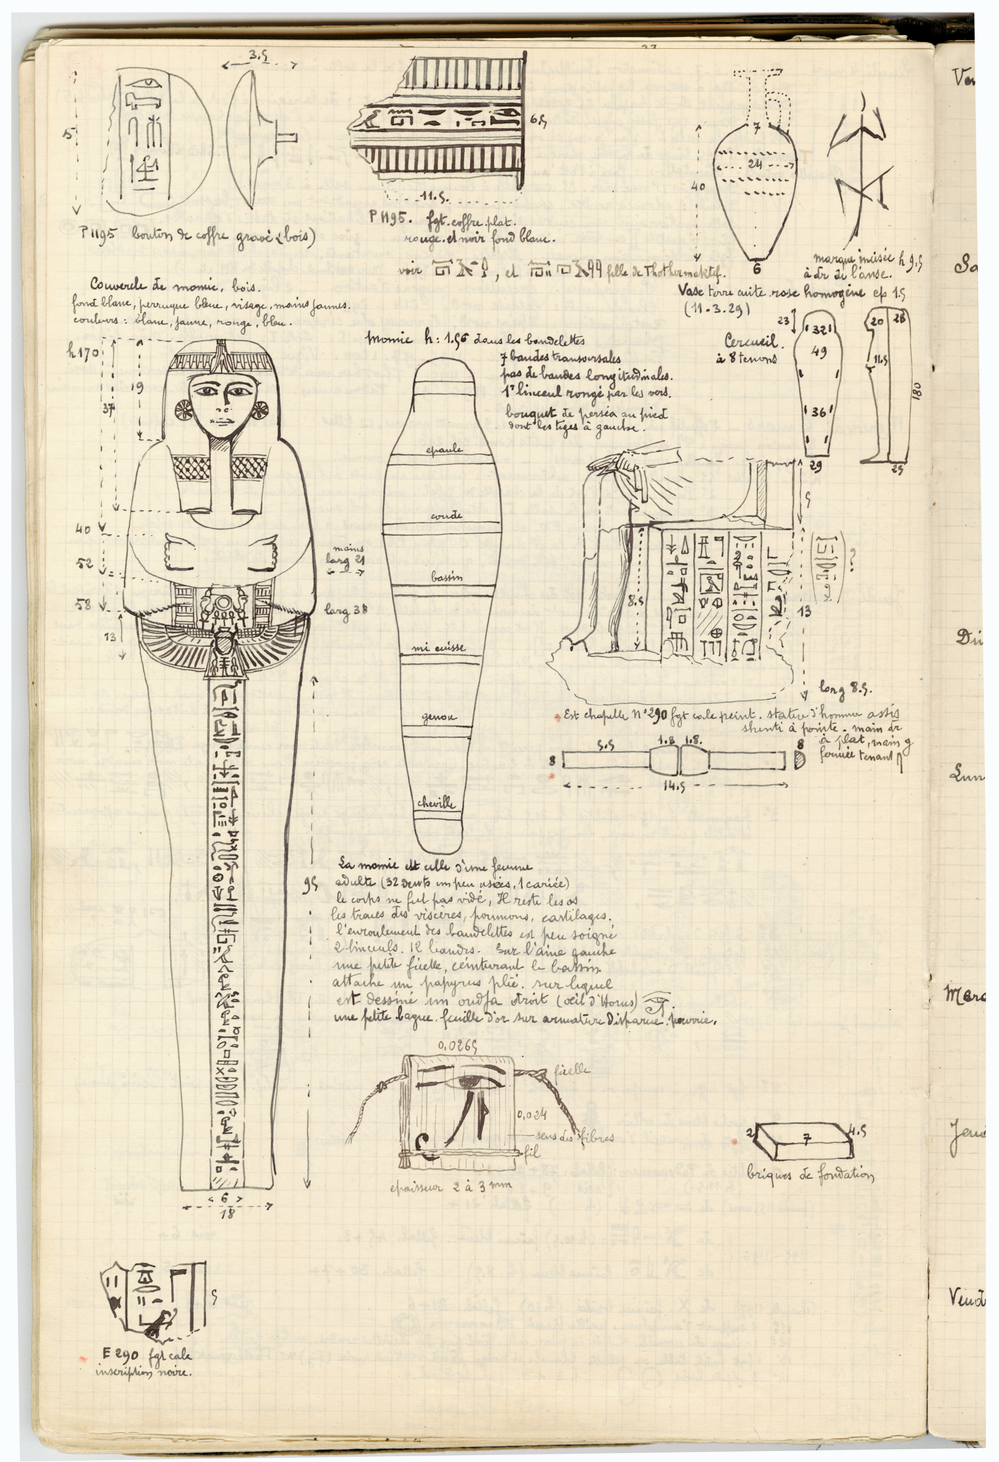 3.5
5
P1195 bouton de coffre gravé (bois)
6.5
11.5.
P1195. fgt. coffre plat.
rouge et noir fond blanc.
voir , et fille de Thothermaktef.
7
24
40
6
marque incisée h 9.5
à dr de l'anse.
Vase terre cuite rose homogène ep 1.5
(11.3.29)
Couvercle de momie, bois.
fond blanc, perruque bleue, visage, mains jaunes.
couleurs : blanc, jaune, rouge, bleu.
h170
37
19
40
52
58
13
mains
larg 21
larg 38
95
6
18
Momie h: 1.56 dans les bandelettes
7 bandes transversales
pas de bandes longitudinales.
1r linceul rongé par les vers.
bouquet de perséa au pied
dont les tiges à gauche.
epaule
coude
bassin
mi cuisse
genou
cheville
Cercueil.
à 8 tenons
23
32
49
36
29
20
28
11.5
180
25
5
8.5
13
?
larg 8.5.
Est chapelle N°290 fgt calc peint. statue d'homme assis
shenti à pointe. main dr
à plat, main g
fermée tenant
8
5.5
1.8
1.8.
8
14.5
La momie est celle d'une femme
adulte (32 dents un peu usées, 1 cariée)
le corps ne fut pas vidé, Il reste les os
les traces des viscères, poumons, cartilages.
l'enroulement des bandelettes est peu soigné
2 linceuls. 12 liandes. Sur l'aine gauche
une petite ficelle, ceinturant le bassin
attache un papyrus plié. sur lequel
est dessiné un oudja droit (œil d'Horus)
une petite bague feuille d'or sur armature disparue, pourrie.
0,0265
ficelle
0,024
sens des fibres
fil
epaisseur 2 à 3 mm
2
7
4.5
briques de fondation
5
E 290 fgt calc
inscription noire.
Mard
Vend